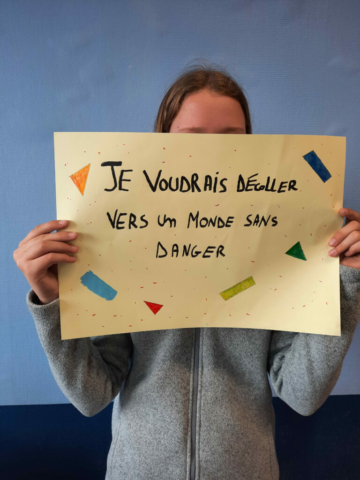 JE VOUDRAIS DÉCOLLER
VERS UN MONDE SANS
DANGER